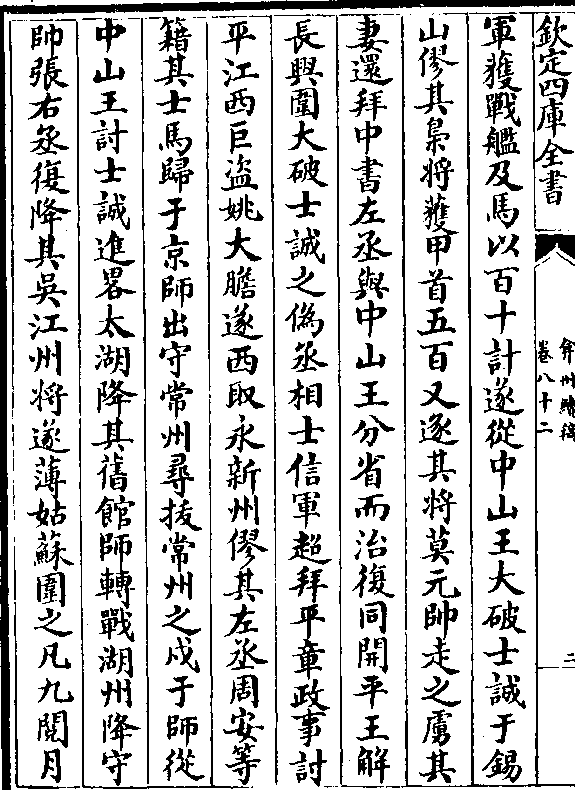 欽定四庫全書
弇州續稿
卷八十二
二
軍獲戰艦及馬以百十計遂從中山王大破士誠于錫
山僇其梟將獲甲首五百又逐其將莫元帥走之虜其
妻還拜中書左丞與中山王分省而治復同開平王解
長興圍大破士誠之偽丞相士信軍超拜平章政事討
平江西巨盜姚大膽遂西取永新州僇其左丞周安等
籍其士馬歸于京師出守常州尋拔常州之戍于師從
中山王討士誠進畧太湖降其舊館師轉戰湖州降守
帥張右丞復降其吳江州將遂薄姑蘇圍之凡九閱月